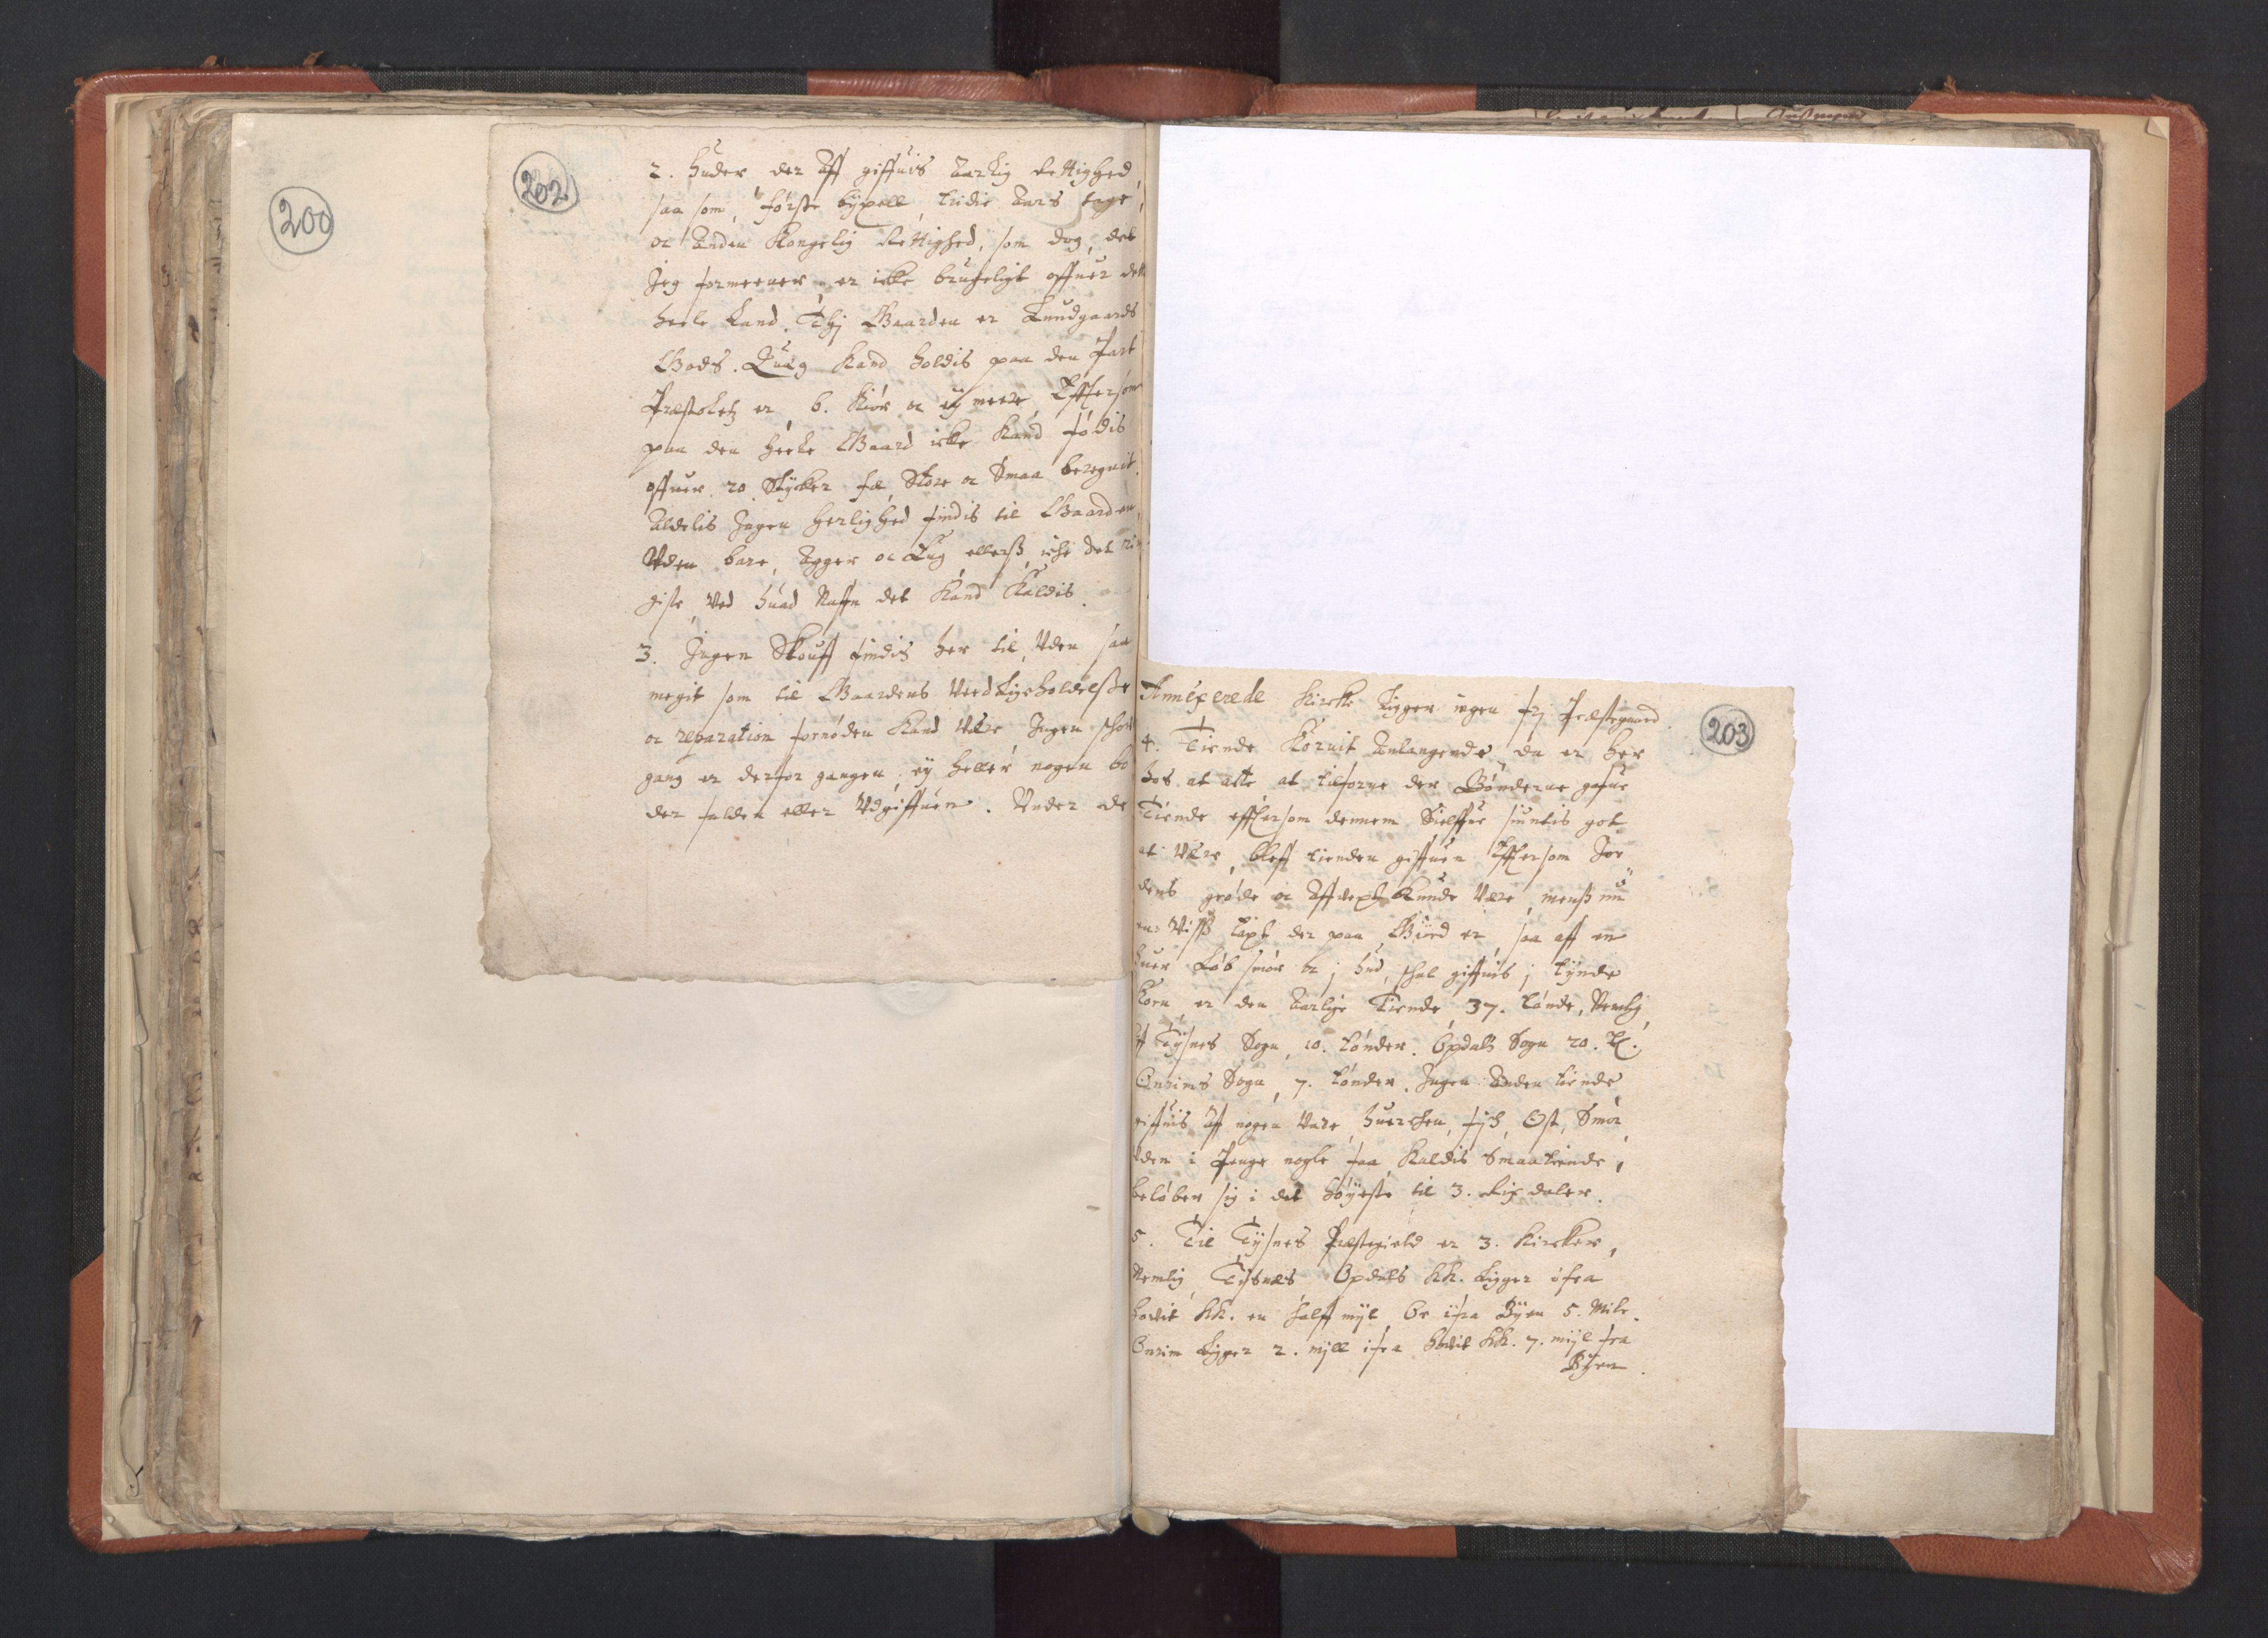 200
202
2. Huder der Aff giffuis Aarlig Rettighed,
saa som, første bÿxell, tridie Aars tage,
oc Anden Kongelig Rettighed, som dog, det
Jeg formeener, er icke brugeligt offuer dett
heele Land. Thj Gaarden er Lundgaards
Gods. Quæg Kand holdis paa den Part
Præstoletz er 6. Kiør oc eÿ meere, Efftersom
paa den heele Gaard icke Kand fødis
offuer 20 Støcker fæ, Store oc Smaa beregnit.
Aldelis Ingen herlighed findis til Gaarden,
Uden bare, Agger oc Eng, ellerß iche det rin
giste, Ved huad Naffn det Kand Kaldis.
3. Ingen Skouff findis her til, Uden saa
megit som til Gaardens Vedligeholdelße
oc reparation fornøden Kand Være Ingen schou
gang er derfor gangen, eÿ heller nogen bo
der falden eller Udgiffuen. Under de
203
Annexerede Kircke Ligger ingen frj Præstegaard.
4. Tiende Kornit Anlangende, da er her
hos at acte at tilforne der Bønderne gafue
Tiende efftersom dennem Sielffue siuntis got
at Være, bleff tienden giffuen Efftersom Jor
dens grøde oc Affvext Kunde Være, menß nu
en Visß Taxt der paa Giord er, saa aff en
huer Løb smør oc j hud, schal giffuis j tønde
Korn, er den Aarlige Tiende 37. tønde, Nemlig
Aff Tÿsnes Sogn, 10. tønder. Opdals Sogn 20. T.
Onrims Sogn, 7. tønder. Ingen Anden tiende
giffuis Aff nogen Vare, huerchen, fisch, Ost, Smør,
Uden i Penge nogle faa, Kaldis Smaatiende,
beløber sig i det høÿeste til 3. Rix daler.
5. Til Tÿsnes Præstegield er 3. Kircker,
Nemlig Tÿsnæs Opdals KK. Ligger ifra
hovit KK. en halff mÿl, Oc ifra Bÿen 5. Mile.
Onrim Ligger 2. mÿll ifra hovit KK. 7. mÿl fra
Bÿen.